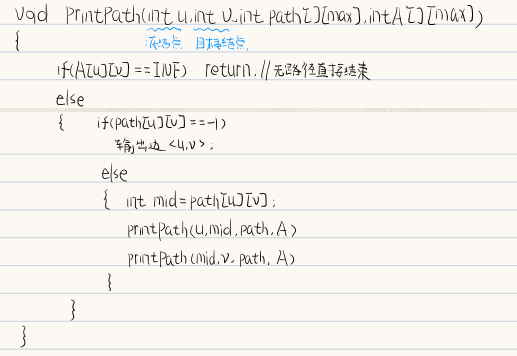 void printPath(int u,int v,int path[][max],int A[][max])
源结点 目标结点
{
if(A[u][v]==INF) return; //无路径直接结束
else
{ if(path[u][v]==-1)
输出边<u,v>;
else
{ int mid=path[u][v];
printPath(u,mid,path,A)
printPath(mid,v,path,A)
}
}
}